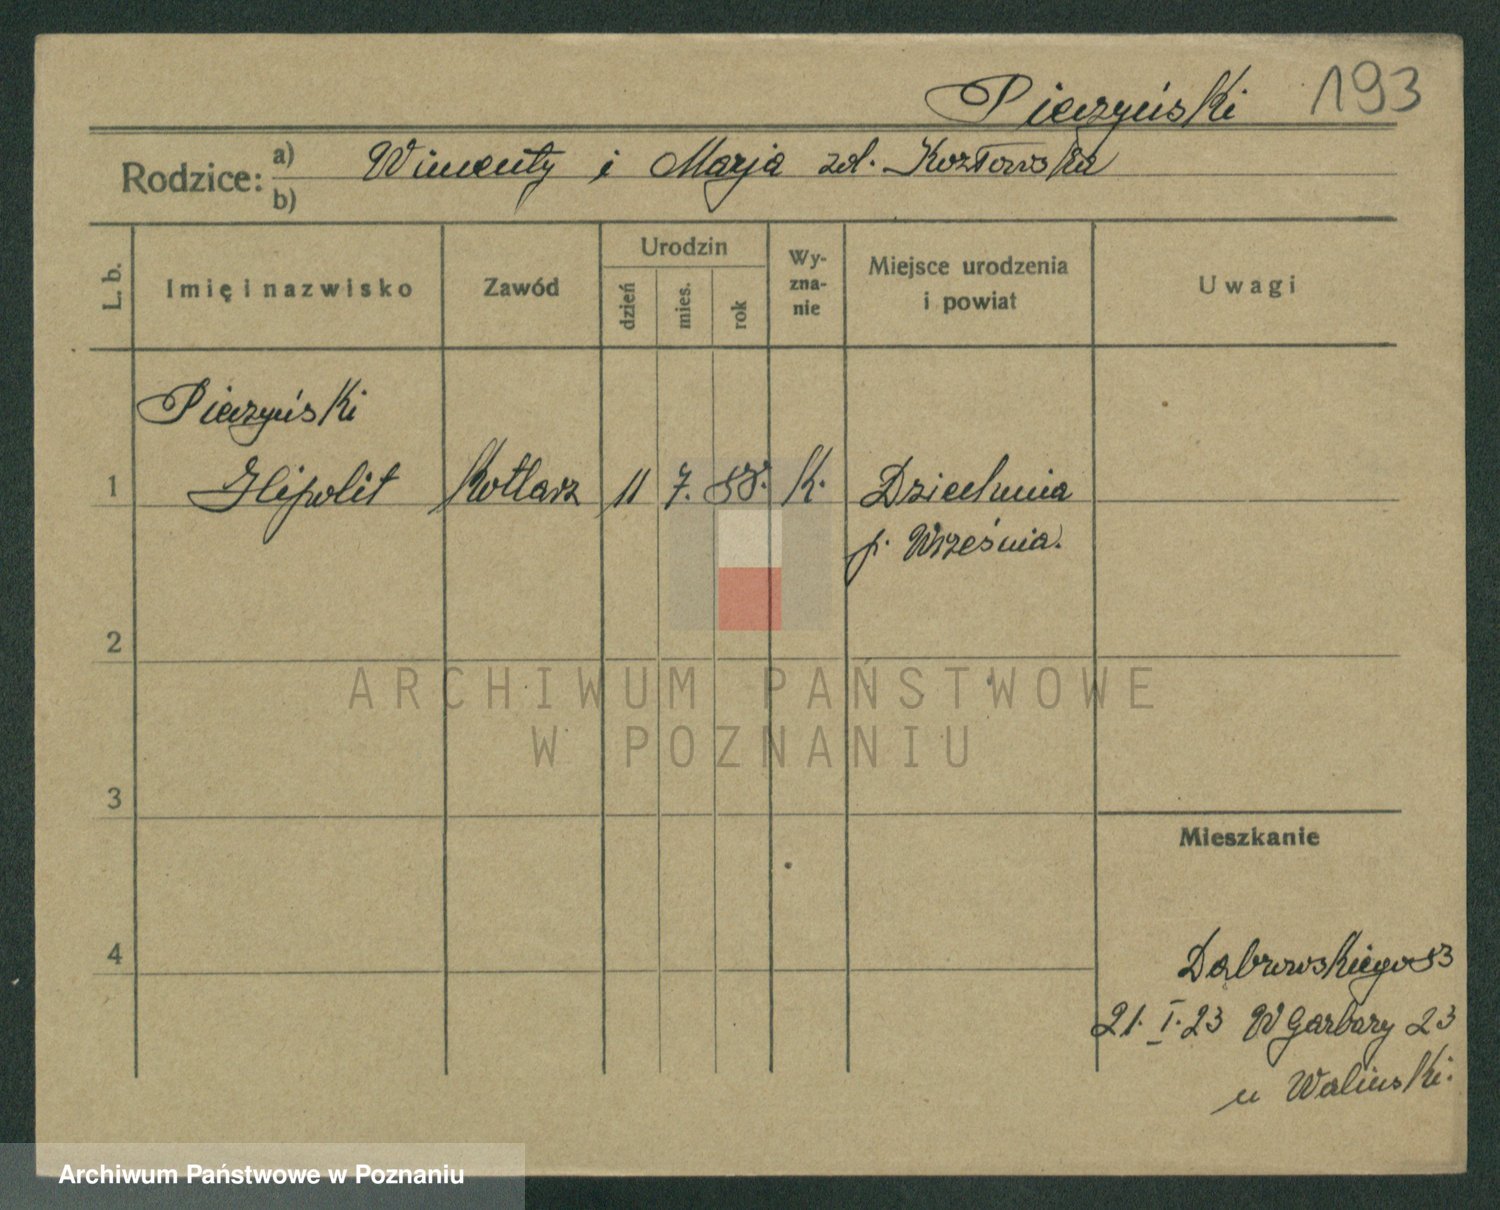 Pieczyński 193
Rodzice: a) Wincenty i Marja zd. Kozłowska
b)
L. b. Imię i nazwisko Zawód Urodzin dzień mies. rok Wy-zna-nie Miejsce urodzenia i powiat Uwagi
Pieczyński
1 Hipolit Kotlarz 11 7. 88. K. Dziechnia
p. Września.
2
ARCHIWUM PAŃSTWOWE
W POZNANIU
3
Mieszkanie
4
Dąbrowskiego 83
21. I. 23 W Garbary 23
u Waliński.
Archiwum Państwowe w Poznaniu